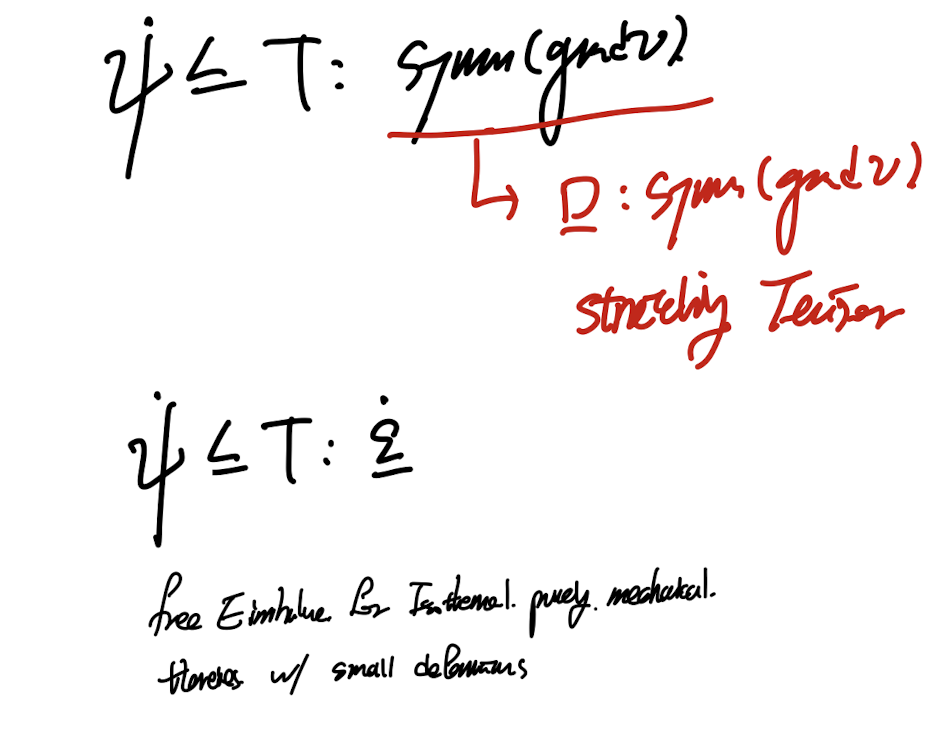 ψ̇ ≤ T: symm(grad v)
↳ D: symm(grad v)
stretching Tensor
ψ̇ ≤ T: ε̇
free for Isothermal. purely. mechanical.
theories w/ small deformations